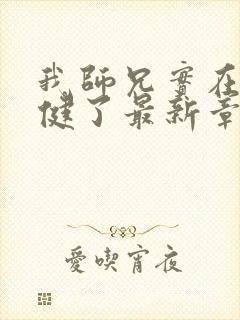 我師兄實在
健了最新章
愛喫宵夜